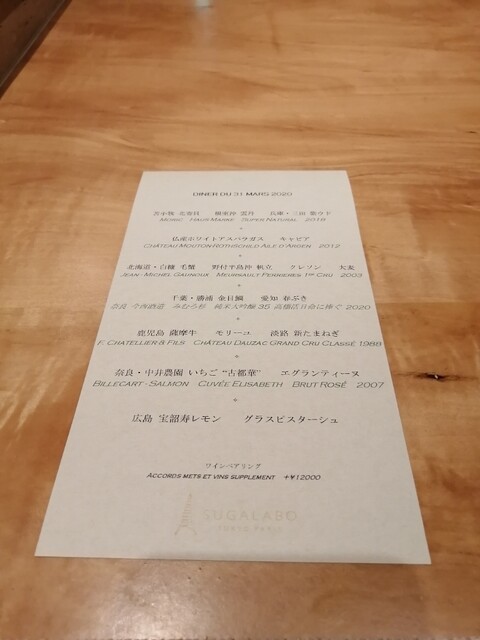 DINER DU 31 MARS 2020
苫小牧 北寄貝 根室沖 雲丹 兵庫・三田 葉ウド
MORIC HAUS MARKE SUPER NATURAL 2018
仏産ホワイトアスパラガス キャビア
CHÂTEAU MOUTON ROTHSCHILD AILE D'ARGENT 2012
北海道・白糠 毛蟹 野付半島沖 帆立 クレソン 大麦
JEAN-MICHEL GAUNOUX MEURSAULT PERRIERES 1ER CRU 2003
千葉・勝浦 金目鯛 愛知 春ぶき
奈良 今西酒造 みむろ杉 純米大吟醸 35 高橋 に捧ぐ 2020
鹿児島 薩摩牛 モリーユ 淡路 新たまねぎ
F. CHATELLIER & FILS CHÂTEAU DAUZAC GRAND CRU CLASSE 1988
奈良・中井農園 いちご "古都華" エグランティーヌ
BILLECART-SALMON CUVÉE ELISABETH BRUT ROSÉ 2007
広島 宝韶寿レモン グラスピスターシュ
ワインペアリング
ACCORDS METS ET VINS SUPPLEMENT +¥12000
SUGALABO
TOKYO PARIS